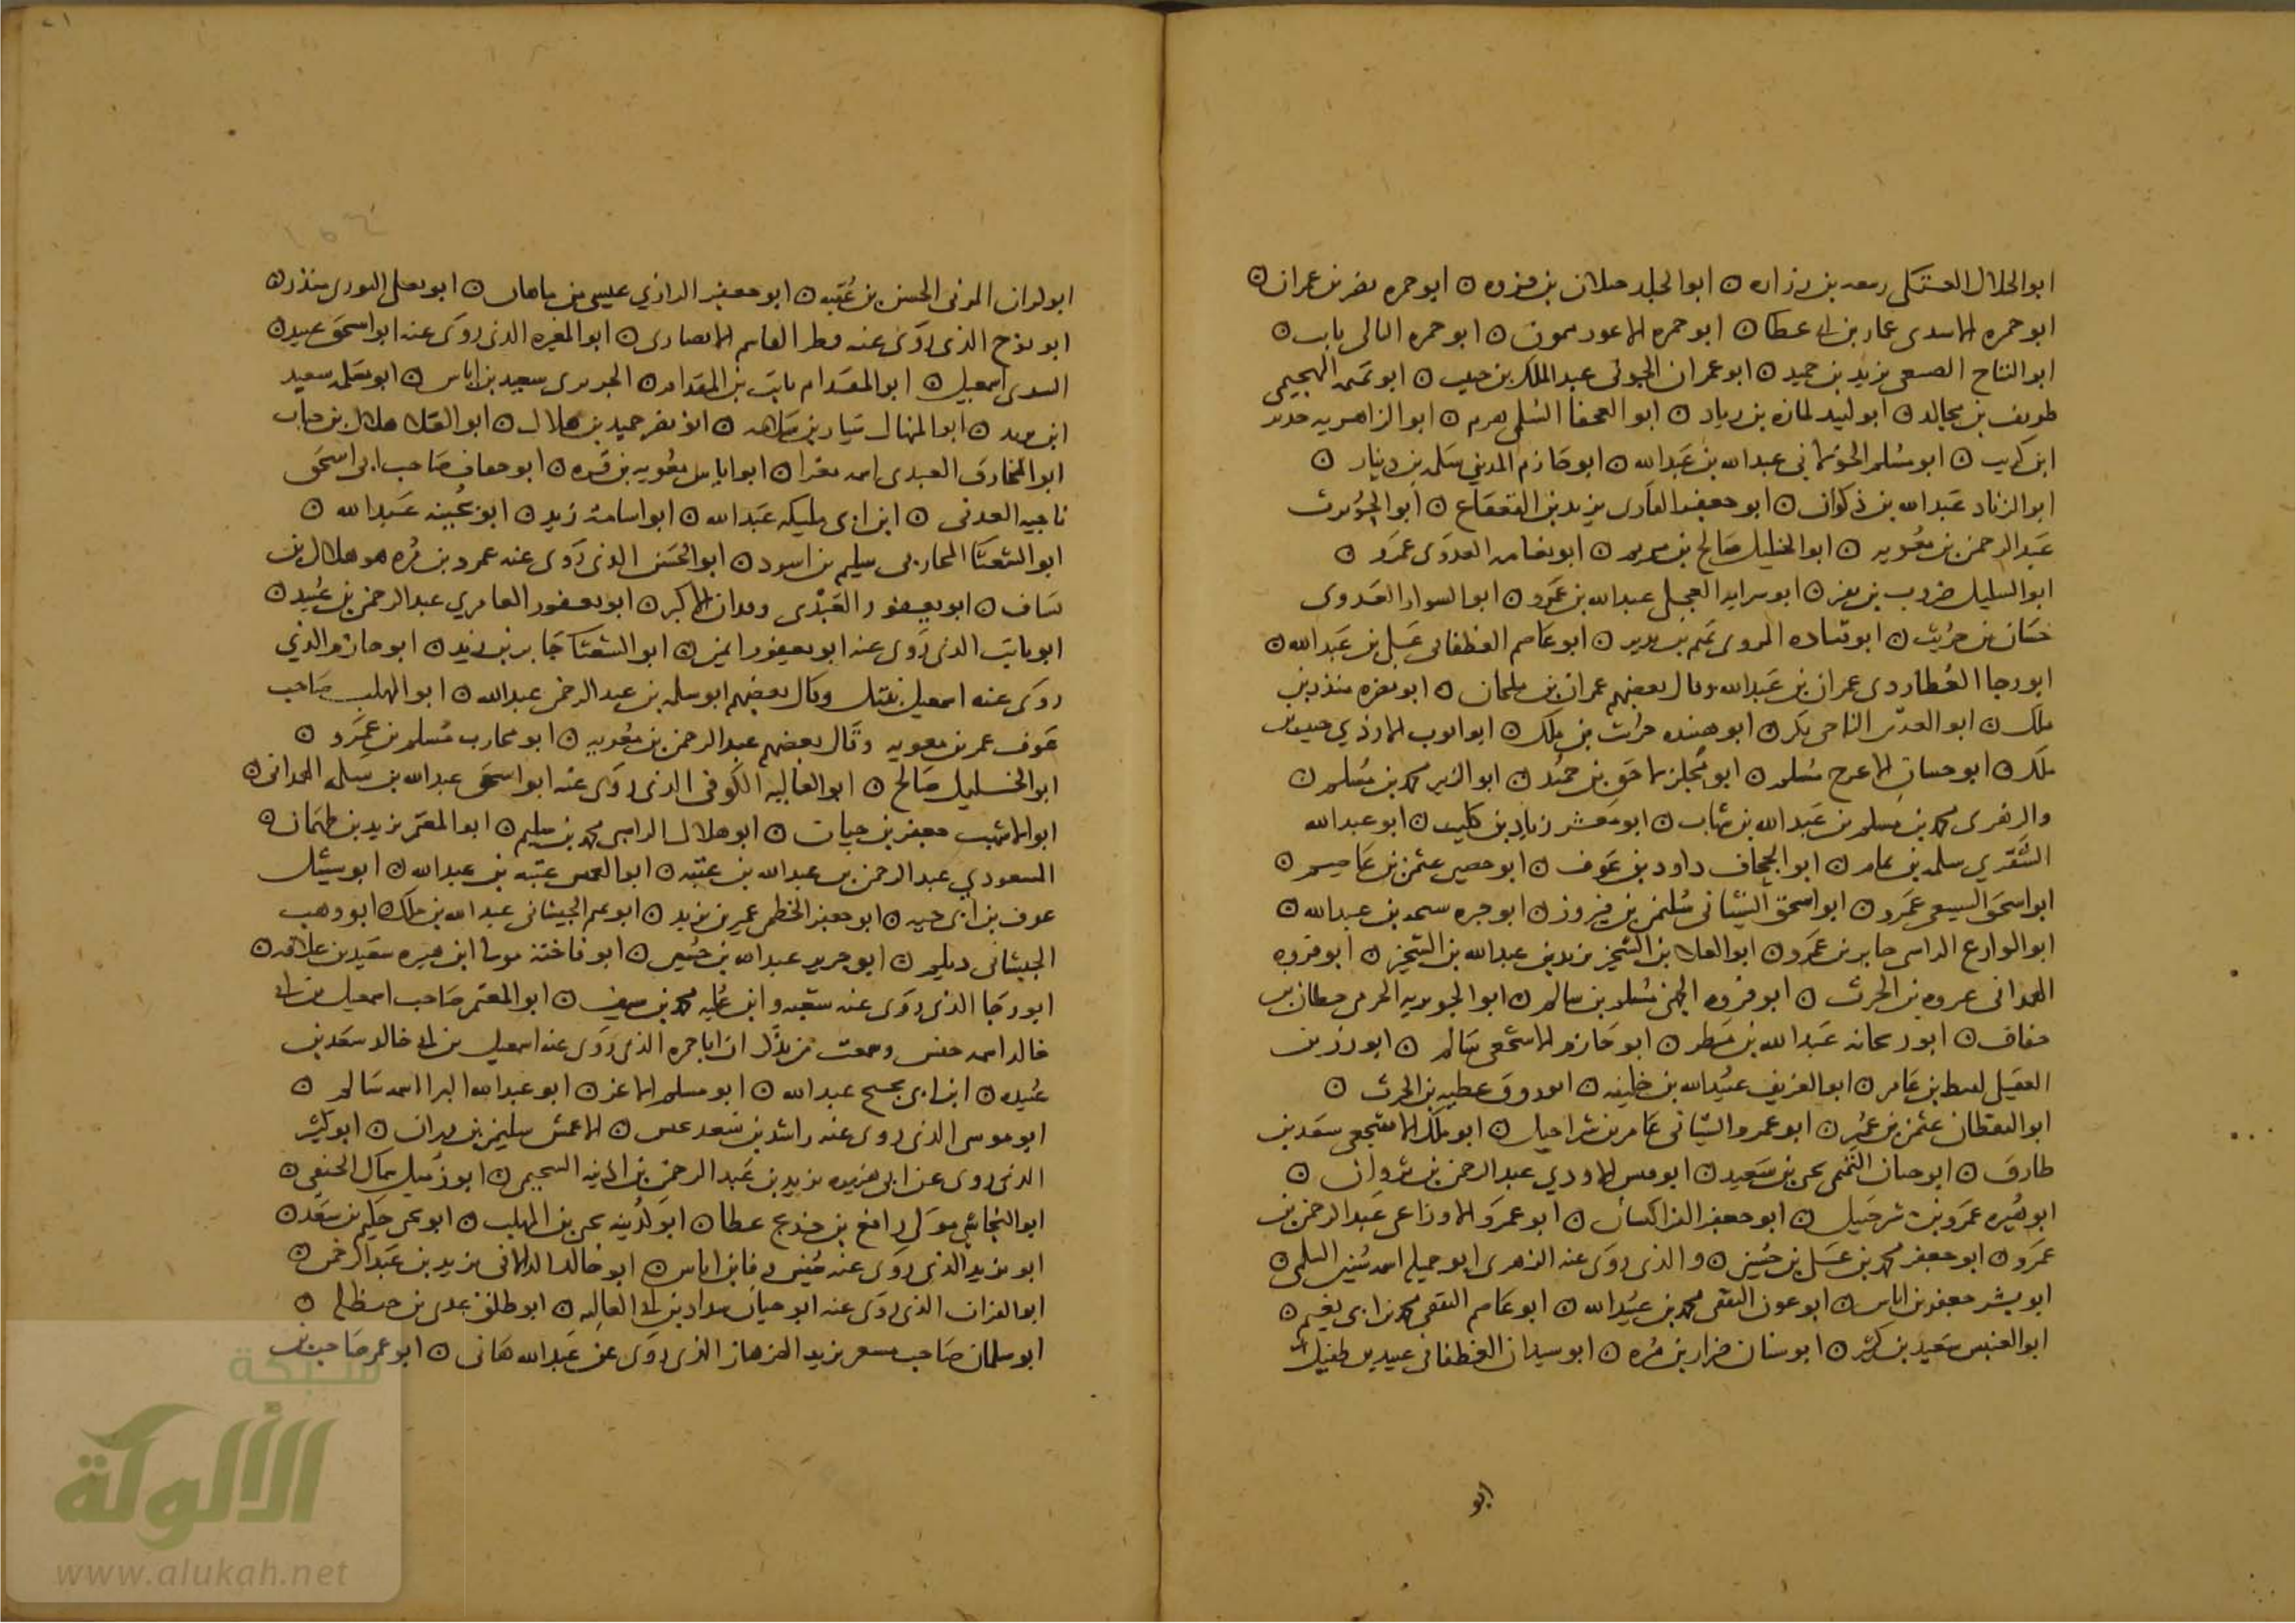 ابو الحلال العتكى ربيعه بن زراره ○ ابو الجلد جيلان بن فروه ○ ابو جمره نصر بن عمران ○
ابو حمزه الاسدى عمار بن ابى عطا ○ ابو حمزه الاعور ميمون ○ ابو حمزه الثمالى ثابت ○
ابو التياح الضبعى يزيد بن حميد ○ ابو عمران الجونى عبد الملك بن حبيب ○ ابو تميمه الهجيمى
طريف بن مجالد ○ ابو لبيد لمازه بن زياد ○ ابو العجفا السلمى هرم ○ ابو الزاهريه حدير
ابن كريب ○ ابو مسلم الخولانى عبد الله بن عبد الله ○ ابو حازم المدينى سلمه بن دينار ○
ابو الزناد عبد الله بن ذكوان ○ ابو جعفر القارى يزيد بن القعقاع ○ ابو الحويرث
عبد الرحمن بن معويه ○ ابو الخليل صالح بن مريم ○ ابو نعامه العدوى عمرو ○
ابو السليل ضريب بن نفير ○ ابو عبد الله بن عمرو ○ ابو السوار العدوى
حسان بن حريث ○ ابو قتاده العدوى تميم بن نذير ○ ابو عاصم الغطفانى على بن عبد الله ○
ابو رجا العطاردى عمران بن عبد الله وقال بعضهم عمران بن ملحان ○ ابو نضره منذر بن
ملك ○ ابو الصديق الناجى بكر ○ ابو هنيده حراث بن ملك ○ ابو ايوب الازدي حبيب بن
ملك ○ ابو حسان الاعرج مسلم ○ ابو مجلز لاحق بن حميد ○ ابو الزبير محمد بن مسلم ○
والزهرى محمد بن مسلم بن عبد الله بن شهاب ○ ابو معشر زياد بن كليب ○ ابو عبد الله
الشقرى سلمه بن تمام ○ ابو الجحاف داود بن عوف ○ ابو حصين عثمن بن عاصم ○
ابو اسحق السبيعى عمرو ○ ابو اسحق الشيبانى سليمن بن فيروز ○ ابو خيره سعد بن عبد الله ○
ابو الوازع الراسبى جابر بن عمرو ○ ابو العلا بن الشخير يزيد بن عبد الله بن الشخير ○ ابو فروه
الهمدانى عروه بن الحرث ○ ابو فروه الجهنى مسلم بن سالم ○ ابو الجويريه الجرمى حطان بن
خفاف ○ ابو ريحانه عبد الله بن مطر ○ ابو حازم الاشجعى سالم ○ ابو رزين
العقيلى لقيط بن عامر ○ ابو الغريف عبيد الله بن خليفه ○ ابو روق عطيه بن الحرث ○
ابو اليقظان عثمن بن عمير ○ ابو عمرو الشيبانى عامر بن شراحيل ○ ابو ملك الاشجعى سعد بن
طارق ○ ابو حيان التيمى يحيى بن سعيد ○ ابو قيس الاودي عبد الرحمن بن ثروان ○
ابو ميسره عمرو بن شرحبيل ○ ابو جعفر الفرا كيسان ○ ابو عمرو الاوزاعى عبد الرحمن بن
عمرو ○ ابو جعفر محمد بن على بن حسين ○ والذى روى عنه الزهرى ابو جميله اسمه سنين السلمى ○
ابو بشر جعفر بن اياس ○ ابو عون الثقفى محمد بن عبيد الله ○ ابو عاصم الثقفى محمد بن ابى
ابو العنبس سعيد بن كثير ○ ابو سنان ضرار بن مره ○ ابو سيدان الغطفانى عبيد بن طفيل
ابو
المزنى الحسن بن عقبه ○ ابو جعفر الرازي عيسى بن ماهان ○ ابو يعلى الثورى منذر ○
ابو نوح الذى روى عنه مطر القاسم الانصارى ○ ابو المغيره الذى روى عنه ابو اسحق عبيد ○
السدى اسمعيل ○ ابو المقدام ثابت بن المقدام ○ الجريرى سعيد بن اياس ○ ابو سعيد
ابن يزيد ○ ابو المنهال سيار بن سلامه ○ ابو نصر حميد بن هلال ○ ابو العلا هلال بن خباب
ابو المخارق العبدى اسمه مغرا ○ ابو اياس معويه بن قره ○ ابو خفاف صاحب ابى اسحق
ناجيه العدنى ○ ابن ابى مليكه عبد الله ○ ابو اسامه زيد ○ ابو عبد الله ○
ابو الشعثا المحاربى سليم بن اسود ○ ابو الحسن الذى روى عنه عمرو بن مره هو هلال بن
يساف ○ ابو يعفور العبدى وقدان الاكبر ○ ابو يعفور العامري عبد الرحمن بن عبيد ○
ابو ثابت الذى روى عنه ابو يعفور ايمن ○ ابو الشعثا جابر بن زيد ○ ابو حازم الذي
روى عنه اسمعيل نبتل وقال بعضهم ابو سلمه بن عبد الرحمن عبد الله ○ ابو المهلب صاحب
عوف عمر بن معويه وقال بعضهم عبد الرحمن بن معويه ○ ابو محارب مسلم بن عمرو ○
ابو الخليل صالح ○ ابو العاليه الكوفى الذى روى عنه ابو اسحق عبد الله بن سلمه الهمدانى ○
ابو الاشهب جعفر بن حيان ○ ابو هلال الراسبى محمد بن سليم ○ ابو المعتمر يزيد بن طهمان ○
المسعودي عبد الرحمن بن عبد الله بن عتبه ○ ابو العميس عتبه بن عبد الله ○ ابو سهل
عوف بن ابى جميله ○ ابو جعفر الخطمى عمير بن يزيد ○ ابو تميم الجيشانى عبد الله بن ملك ○ ابو وهب
الجيشانى ديلم ○ ابو حريز عبد الله بن حسين ○ ابو فاختة مولى ابن هبيره سعيد بن علاقه ○
ابو رجا الذى روى عنه شعبه وابن عليه محمد بن سيف ○ ابو المعتمر صاحب اسمعيل بن ابى
خالد اسمه حنش وسمعت من يذكر ان ابا حمزه الذى روى عنه اسمعيل بن ابى خالد سعد بن
عبيده ○ ابن ابى نجيح عبد الله ○ ابو مسلم الاغر ○ ابو عبد الله البراد اسمه سالم ○
ابو موسى الذى روى عنه راشد بن سعد عبس ○ الاعمش سليمن بن مهران ○ ابو كثير
الذى روى عن ابى هريره يزيد بن عبد الرحمن بن اذينه السحيمى ○ ابو زميل سماك الحنفى ○
ابو النجاشى مولى رافع بن خديج عطا ○ ابو كدينه يحيى بن المهلب ○ ابو يحيى حكيم بن سعد ○
ابو يزيد الذى روى عنه وقا بن اياس ○ ابو خالد الدالانى يزيد بن عبد الرحمن ○
ابو الفرات الذى روى عنه ابو حيان شداد بن ابى العاليه ○ ابو طلق عدى بن حنظله ○
ابو سلمان صاحب مسعر يزيد الهزهاز الذى روى عن عبد الله هانى ○ ابو عمر صاحب
شبكة
الألوكة
www.alukah.net